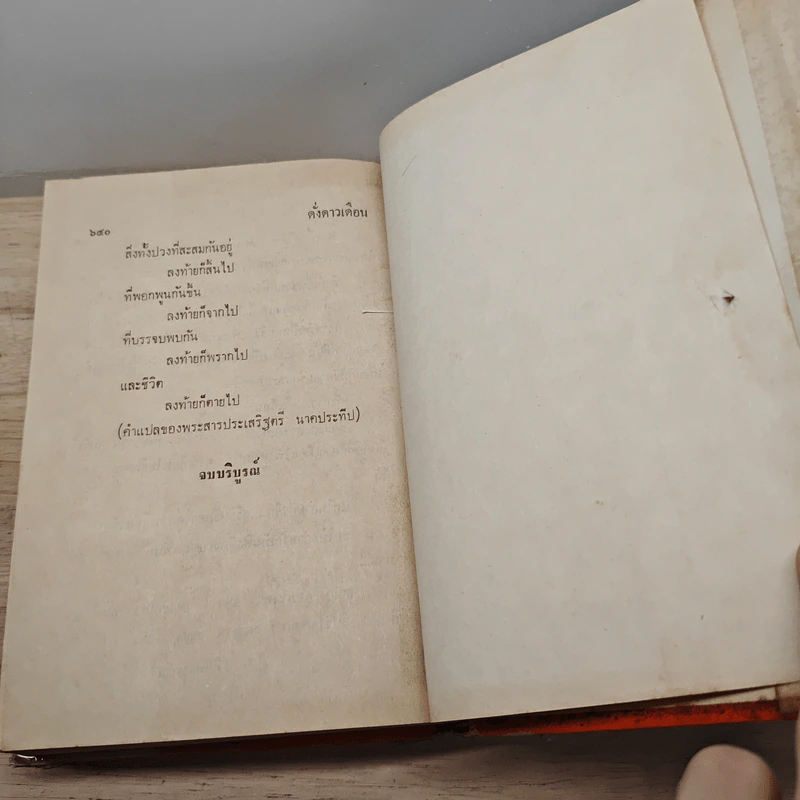 ๖๕๐
ดั่งดาวเดือน
สิ่งทั้งปวงที่สะสมกันอยู่
ลงท้ายก็สิ้นไป
ที่พอกพูนกันขึ้น
ลงท้ายก็จากไป
ที่บรรจบพบกัน
ลงท้ายก็พรากไป
และชีวิต
ลงท้ายก็ตายไป
(คำแปลของพระสารประเสริฐตรี นาคประทีป)
จบบริบูรณ์